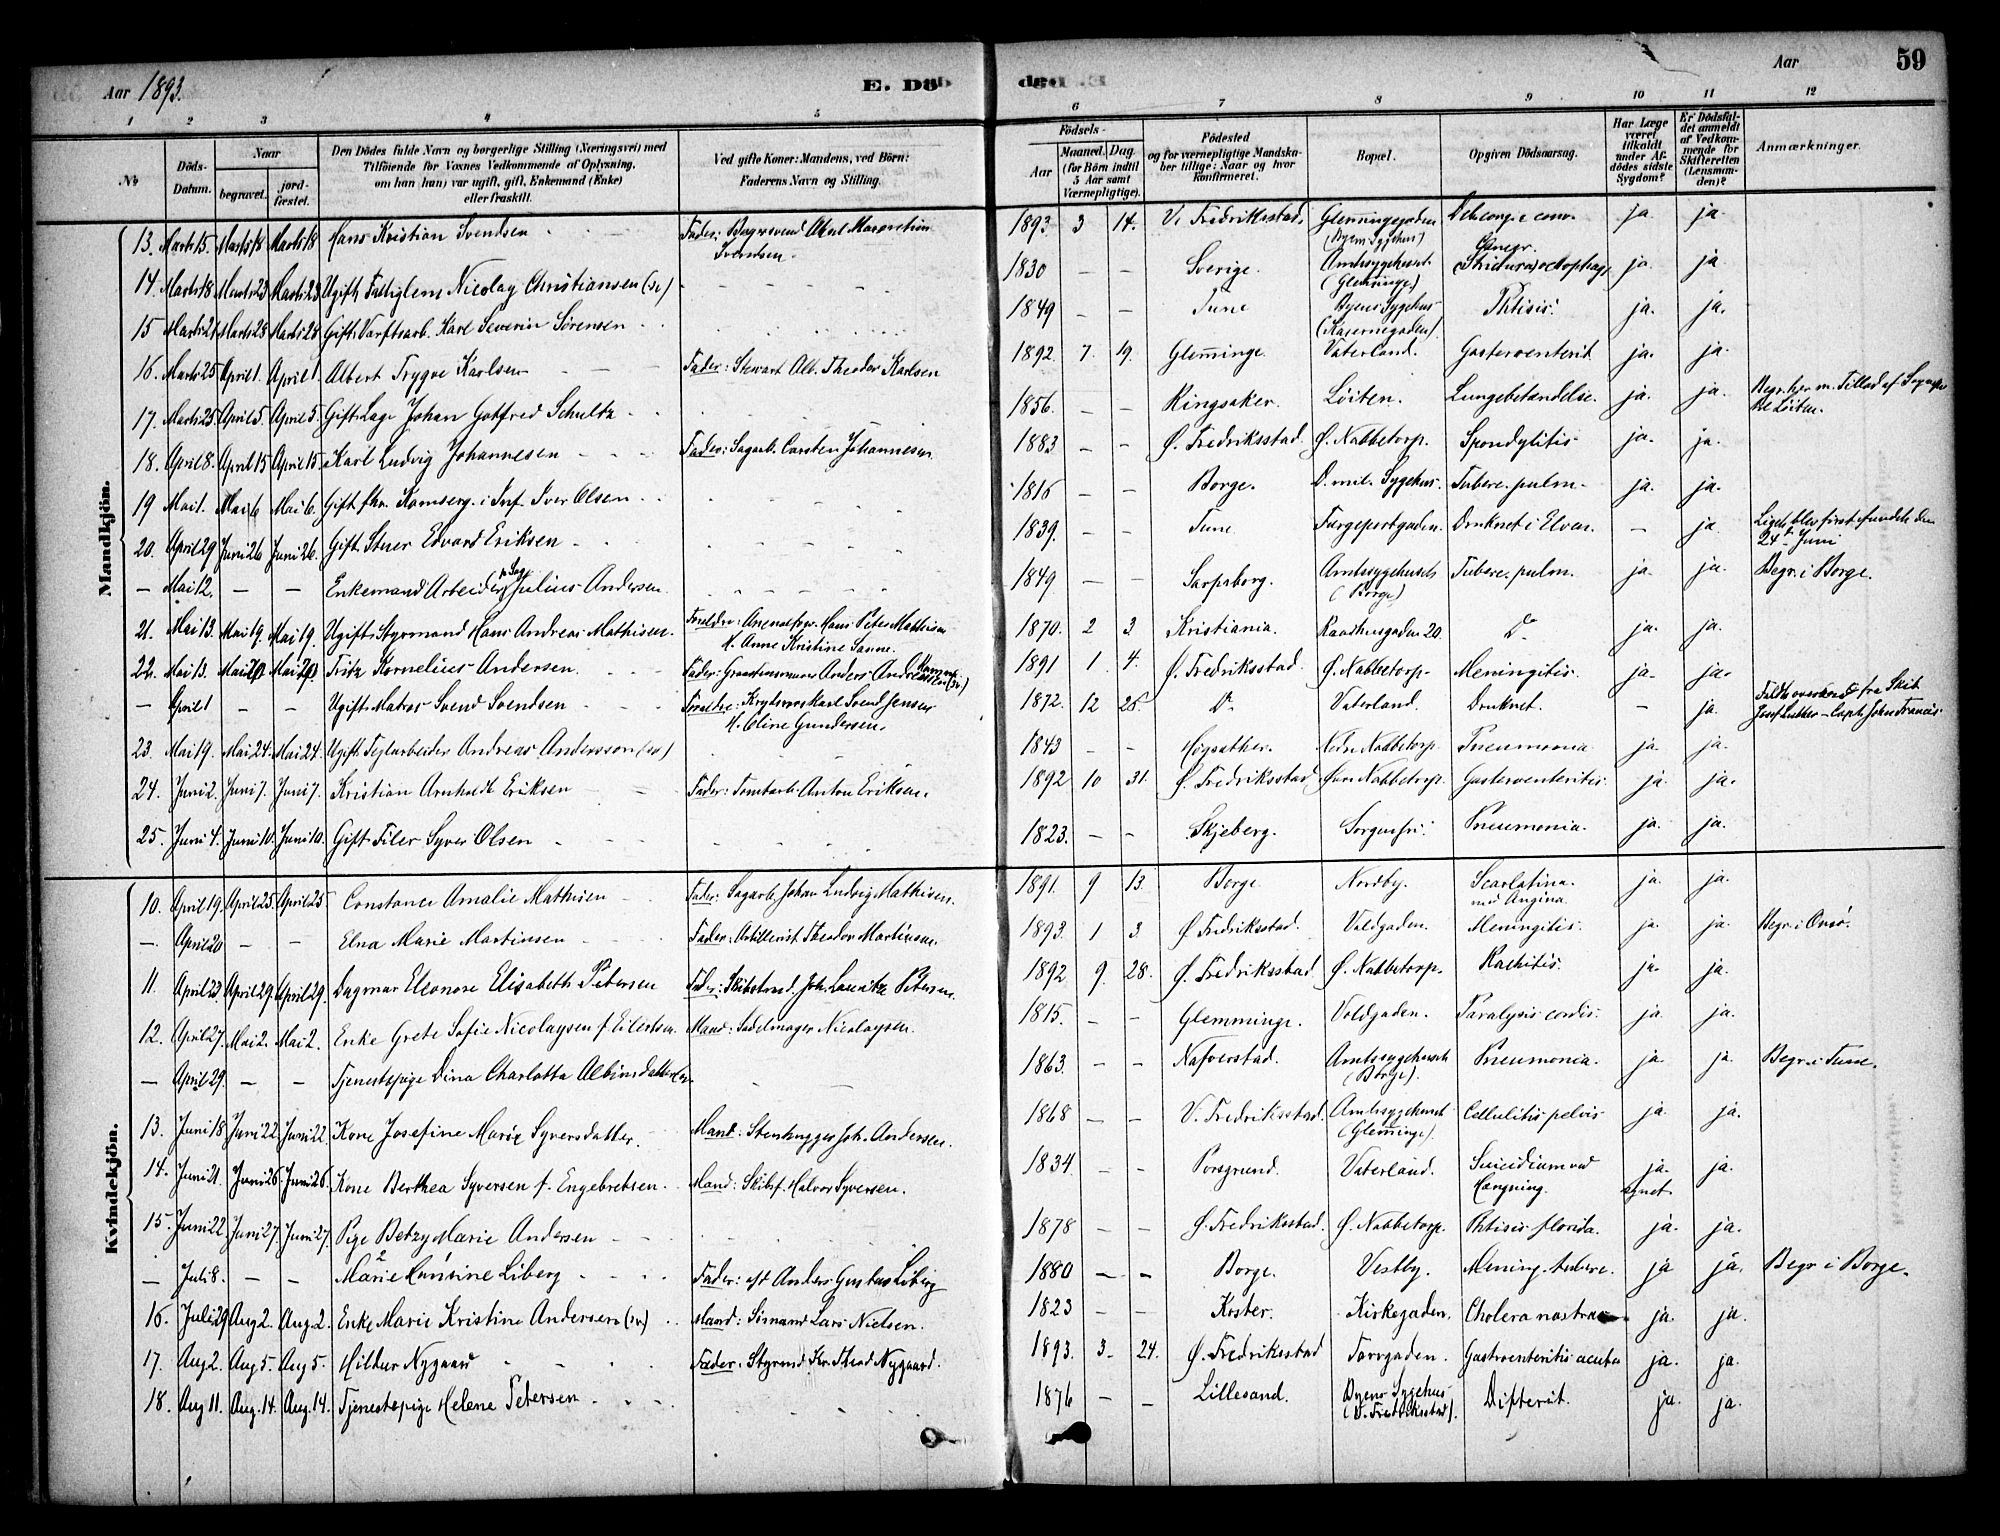 Aar 1893.
E. Dö
Aar
59
1 2 3 4 5 6 7 8 9 10 11 12
No
Döds-Datum.
Naar begravet. jordfæstet.
Den Dödes fulde Navn og borgerlige Stilling (Næringsvei) med
Tilföiende for Voxnes Vedkommende af Oplysning,
om han (hun) var ugift, gift, Enkemand (Enke)
eller fraskilt.
Ved gifte Koner: Mandens, ved Börn:
Faderens Navn og Stilling.
Födsels-
Aar
Maaned. Dag.
(for Börn indtil
5 Aar samt
Værnepligtige).
Födested
og for værnepligtige Mandska-
ber tillige: Naar og hvor
konfirmeret.
Bopæl.
Opgiven Dödsaarsag.
Har Læge
været
tilkaldt
under Af-
dödes sidste
Sygdom?
Er Dödsfal-
det anmeldt
af Vedkom-
mende for
Skifteretten
(Lensman-
den)?
Anmærkninger.
Mandkjön.
13. Marts 15. Marts 18 Marts 18 Hans Kristian Svendsen Fader: Svendsen. 1893 3 14. V. Fredriksstad Glemmingegaden (Byens Sygehus) ja. ja.
14. Marts 18 Marts 23 Marts 23 Ugift Fattiglem Nicolay Christiansen (sv) 1830 – – Sverige. Amtssygehuset (Glemminge) ja. ja
15 Marts 21 Marts 28 Marts 28 Gift Værftsarb. Karl Severin Sørensen 1849 – – Tune Byens Sygehus (Kasernegaden). Phtisis. ja. ja.
16. Marts 25 April 1. April 1. Albert Trygve Karlsen Fader: Stewart Alb. Theodor Karlsen 1892. 7. 19. Glemminge. Vaterland. Gasteroenterit ja. ja.
17. Marts 25. April 5. April 5 Gift Læge Johan Gotfred Schultz 1856. – – Ringsaker. Løiten. Lungebetændelse. ja. ja. Begr. her m. Tillad. af Sognepr. til Løiten.
18. April 8. April 15 April 15 Karl Ludvig Johannesen Fader: Sagarb. Carsten Johannesen 1883 – – Ø. Fredriksstad. Ø. Nabbetorp. Spondylitis ja. ja.
19 Mai 1. Mai 6 Mai 6. Gift fhv. Kommserg. i Inf. Iver Olsen 1816 – – Borge. D. mil. Sygehus. Tuberc. pulm. ja. ja.
20. April 29 Juni 26 Juni 26. Gift Stuer Edvard Eriksen 1839. – – Tune Færgeportgaden. Druknet i Elven. – ja Liget blev først fundet den 24de Juni
– Mai 12. – – Enkemand Arbeider p. Sag Julius Andersen 1849 – – Sarpsborg. Amtssygehuset (Borge) Tuberc. pulm. ja. ja. Begr. i Borge.
21. Mai 13. Mai 19. Mai 19. Ugift Styrmand Hans Andreas Mathisen. Forældre: Hans Peter Mathisen H. Anne Kristine Sanne. 1870. 2 3 Kristiania. Raadhusgaden 20. Do ja. ja.
22. Mai 13. Mai 20 Mai 20 Fritz Kornelius Andersen. Fader: Anders Andreassen (sv) 1891 1. 4. Ø. Fredriksstad. Ø. Nabbetorp. Meningitis. ja. ja.
– April 1 – – Ugift Matros Svend Svendsen Forældre: Svend Jensen H. Oline Gundersen. 1872. 12 26. Do Vaterland. Druknet. – ja. Faldt overbord fra Skib – Capt. John Francis.
23. Mai 19. Mai 24. Mai 24. Ugift Teglarbeider Andreas Andersson (sv) 1843 – – Høgsäther. Nedr. Nabbetorp. Pneumonia. ja. ja.
24. Juni 2. Juni 7. Juni 7. Kristian Arnholdt Eriksen Fader: Tomtarb. Anton Eriksen. 1892 10 31. Ø. Fredriksstad Nabbetorp. Gasteroenteritis. ja. ja.
25. Juni 4. Juni 10. Juni 10. Gift Filer Syver Olsen 1823. – – Skjeberg. Sorgenfri. Pneumonia. ja. ja.
Kvindekjön.
10. April 19. April 25 April 25 Constance Amalie Mathisen Fader: Sagarb. Johan Ludvig Mathisen. 1891. 9 13. Borge. Nordby. Scarlatina med Angina. ja. ja.
– April 20 – – Elna Marie Martinsen Fader: Artillerist Theodor Martinsen. 1893. 1 3. Ø. Fredriksstad. Voldgaden. Meningitis. ja. ja. Begr. i Onsø.
11. April 23 April 29. April 29. Dagmar Eleonore Elisabeth Petersen Fader: Skibstømd. Joh. Lauritz Petersen. 1892 9. 28. Ø. Fredriksstad. Ø. Nabbetorp. Rachitis. ja. ja.
12. April 27. Mai 2. Mai 2. Enke Grete Sofie Nicolaysen f. Eilertsen. Mand: Sadelmager Nicolaysen. 1815. – – Glemminge. Voldgaden. Paralysis cordis. ja. ja.
– April 29. – – Tjenestepige Dina Charlotta Albinsdatter (sv) 1863. – – Nafverstad. Amtssygehuset (Borge). Pneumonia. ja. ja. Begr. i Tune.
13. Juni 18 Juni 22 Juni 22 Kone Josefine Marie Syversdatter Mand: Stenhugger Joh. Andersen. 1868 – – V. Fredriksstad. Amtssygehuset (Glemminge). Cellulitis pelvis ja. ja.
14. Juni 21. Juni 26 Juni 26 Kone Berthea Syversen f. Engebretsen. Mand: Skibsf. Halvor Syversen. 1834 – – Porsgrund. Vaterland. Suicidium ved Hængning. ja. synet. ja.
15. Juni 22 Juni 27 Juni 27. Pige Betzy Marie Andersen 1878 – – Ø. Fredriksstad. Ø. Nabbetorp. Phtisis florida. ja. ja.
– Juli 8. – – Marie Hansine Liberg Fader: Anders Gustav Liberg 1880 – – Borge. Vestby. Mening. tuberc. ja ja. Begr. i Borge.
16. Juli 29 Aug 2. Aug. 2. Enke Marie Kristine Andersen (sv.) Mand: Sømand Lars Nielsen. 1823 – – Koster. Kirkegaden. Cholera nostras ja. ja.
17. Aug 2. Aug 5. Aug 5. Hildur Nygaard Fader: Styrmd. Kr. Thod. Nygaard. 1893. 3. 24. Ø. Fredriksstad Torvgaden. Gastroenteritis acuta ja. ja.
18. Aug 11. Aug. 14. Aug. 14. Tjenestepige Helene Petersen 1876 – – Lillesand. Byens Sygehus (V. Fredriksstad). Difterit. ja. ja.